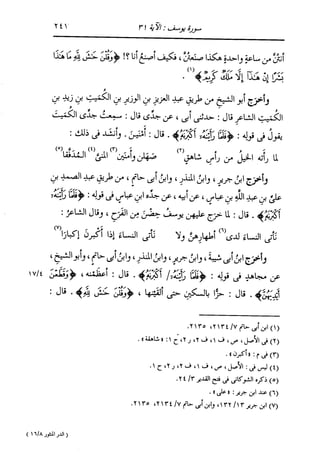 سورة يوسف : الآية ٣١ ٢٤١
أنتنَّ من ساعةٍ واحدةٍ هكذا صنعتُنَّ، فكيف أصنعُ أنا؟! ﴿وَقُلْنَ حَاشَ لِلَّهِ مَا هَٰذَا
بَشَرًا إِنْ هَٰذَآ إِلَّا مَلَكٌ كَرِيمٌ﴾(١).
وأخرَج أبو الشيخِ من طريقِ عبدِ العزيزِ بنِ الوزيرِ بنِ الكُمَيتِ بنِ زيدِ بنِ
الكُمَيتِ الشاعرِ قال : حدثني أبي ، عن جدِّي قال : سمِعتُ جدِّي الكُميتَ
يقولُ في قولِه : ﴿فَلَمَّا رَأَيْنَهُۥٓ أَكْبَرْنَهُۥ﴾ . قال : أَمْنَين . وأنشَد في ذلك :
لما رأته الخيلُ من رأسِ شاهقٍ(٢) صهَلن وأَمنَين(٣) المَنِيَّ(٤) المُدَفَّقا(٥)
وأخرَج ابنُ جريرٍ ، وابنُ المنذرِ ، وابنُ أبي حاتمٍ ، من طريقِ عبدِ الصمدِ بنِ
عليِّ بنِ عبدِ اللَّهِ بنِ عباسٍ ، عن أبيه ، عن جدِّه ابنِ عباسٍ في قولِه : ﴿فَلَمَّا رَأَيْنَهُۥٓ
أَكْبَرْنَهُۥ﴾ . قال : لما خرَج عليهن يوسفُ حِضْنَ مِن الفَرَحِ ، وقال الشاعرُ :
نأتى النساءَ لدى(٦) أطهارِهنَّ ولا نأتى النساءَ إذا أكبَرن إكبارًا(٧)
وأخرَج ابنُ أبي شيبةَ ، وابنُ جريرٍ ، وابنُ المنذرِ ، وابنُ أبي حاتمٍ ، وأبو الشيخِ ،
عن مجاهدٍ في قولِه : ﴿فَلَمَّا رَأَيْنَهُۥٓ / أَكْبَرْنَهُۥ﴾ . قال : أعظَمنه ، ﴿وَقَطَّعْنَ ١٧/٤
أَيْدِيَهُنَّ﴾ . قال : حزًّا بالسكينِ حتى ألقَينها ، ﴿وَقُلْنَ حَاشَ لِلَّهِ﴾ . قال :
(١) ابن أبي حاتم ٧/ ٢١٣٤، ٢١٣٥.
(٢) في الأصل ، ص ، ف ١، ف ٢، ر ٢، ح ١: «شاهقة» .
(٣) في م : «أكبرن» .
(٤) ليس في : الأصل ، ص ، ف ١، ف ٢، ر ٢، ح ١.
(٥) ذكره الشوكاني في فتح القدير ٣/ ٢٤.
(٦) عند ابن جرير : «على» .
(٧) ابن جرير ١٣/ ١٣٢، وابن أبي حاتم ٧/ ٢١٣٤، ٢١٣٥.
( الدر المنثور ١٦/٨ )